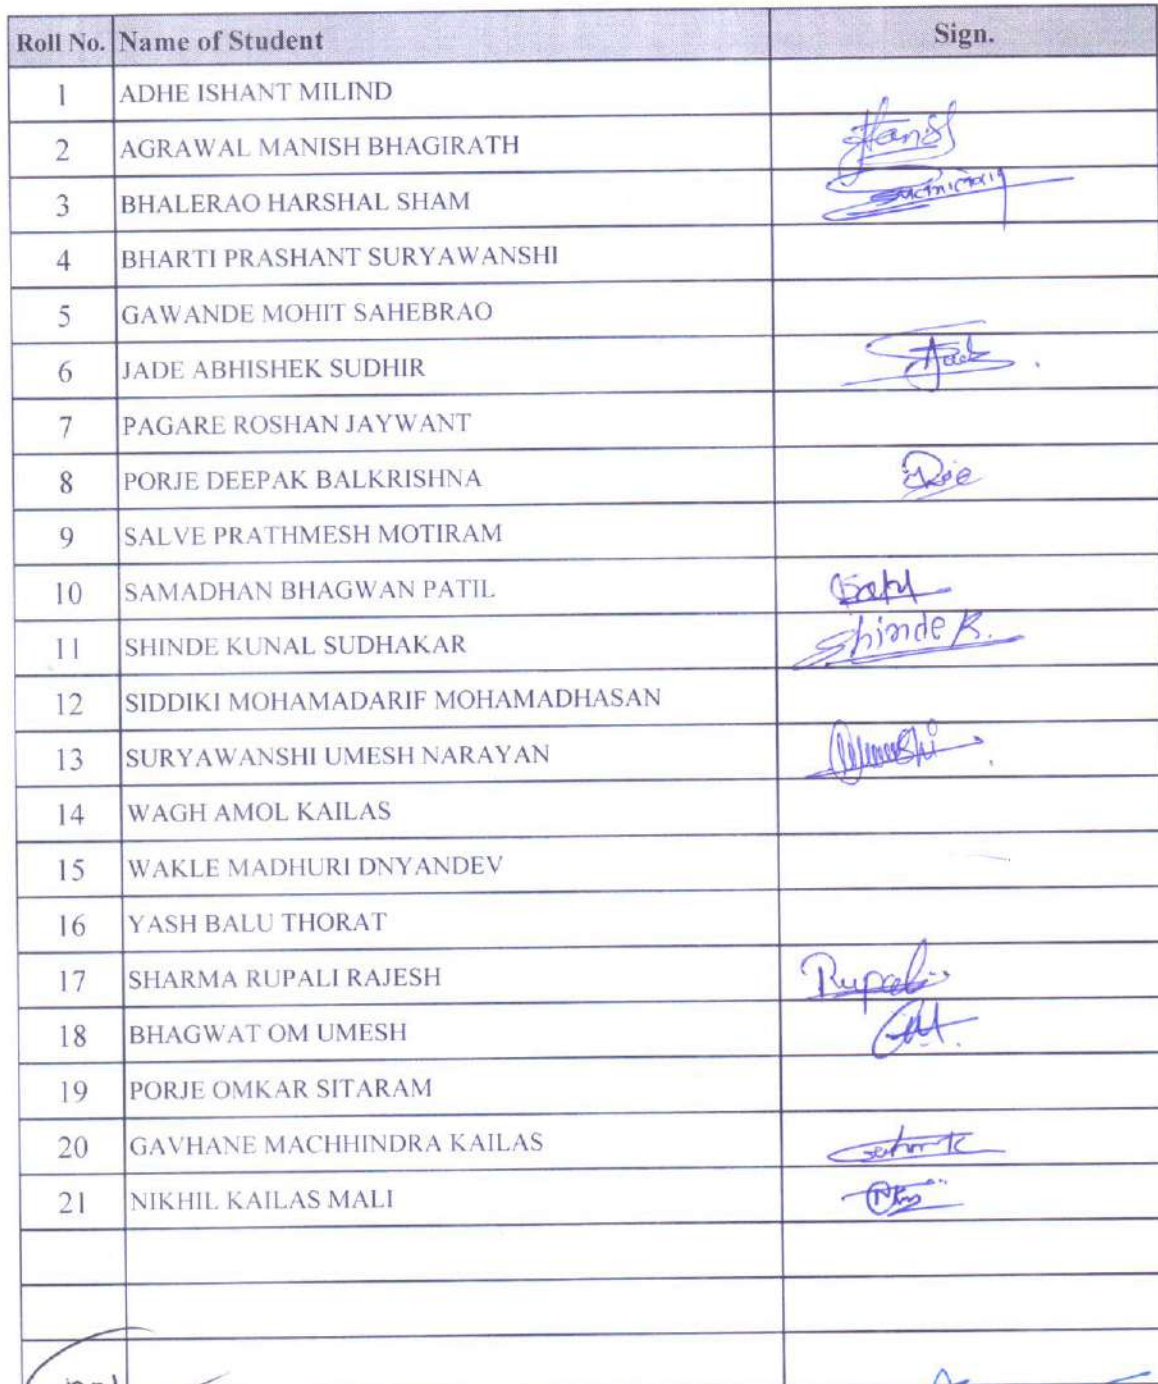 Roll No. Name of Student Sign.
1 ADHE ISHANT MILIND
2 AGRAWAL MANISH BHAGIRATH
3 BHALERAO HARSHAL SHAM
4 BHARTI PRASHANT SURYAWANSHI
5 GAWANDE MOHIT SAHEBRAO
6 JADE ABHISHEK SUDHIR
7 PAGARE ROSHAN JAYWANT
8 PORJE DEEPAK BALKRISHNA
9 SALVE PRATHMESH MOTIRAM
10 SAMADHAN BHAGWAN PATIL
11 SHINDE KUNAL SUDHAKAR Shinde K.
12 SIDDIKI MOHAMADARIF MOHAMADHASAN
13 SURYAWANSHI UMESH NARAYAN
14 WAGH AMOL KAILAS
15 WAKLE MADHURI DNYANDEV
16 YASH BALU THORAT
17 SHARMA RUPALI RAJESH Rupali
18 BHAGWAT OM UMESH
19 PORJE OMKAR SITARAM
20 GAVHANE MACHHINDRA KAILAS
21 NIKHIL KAILAS MALI